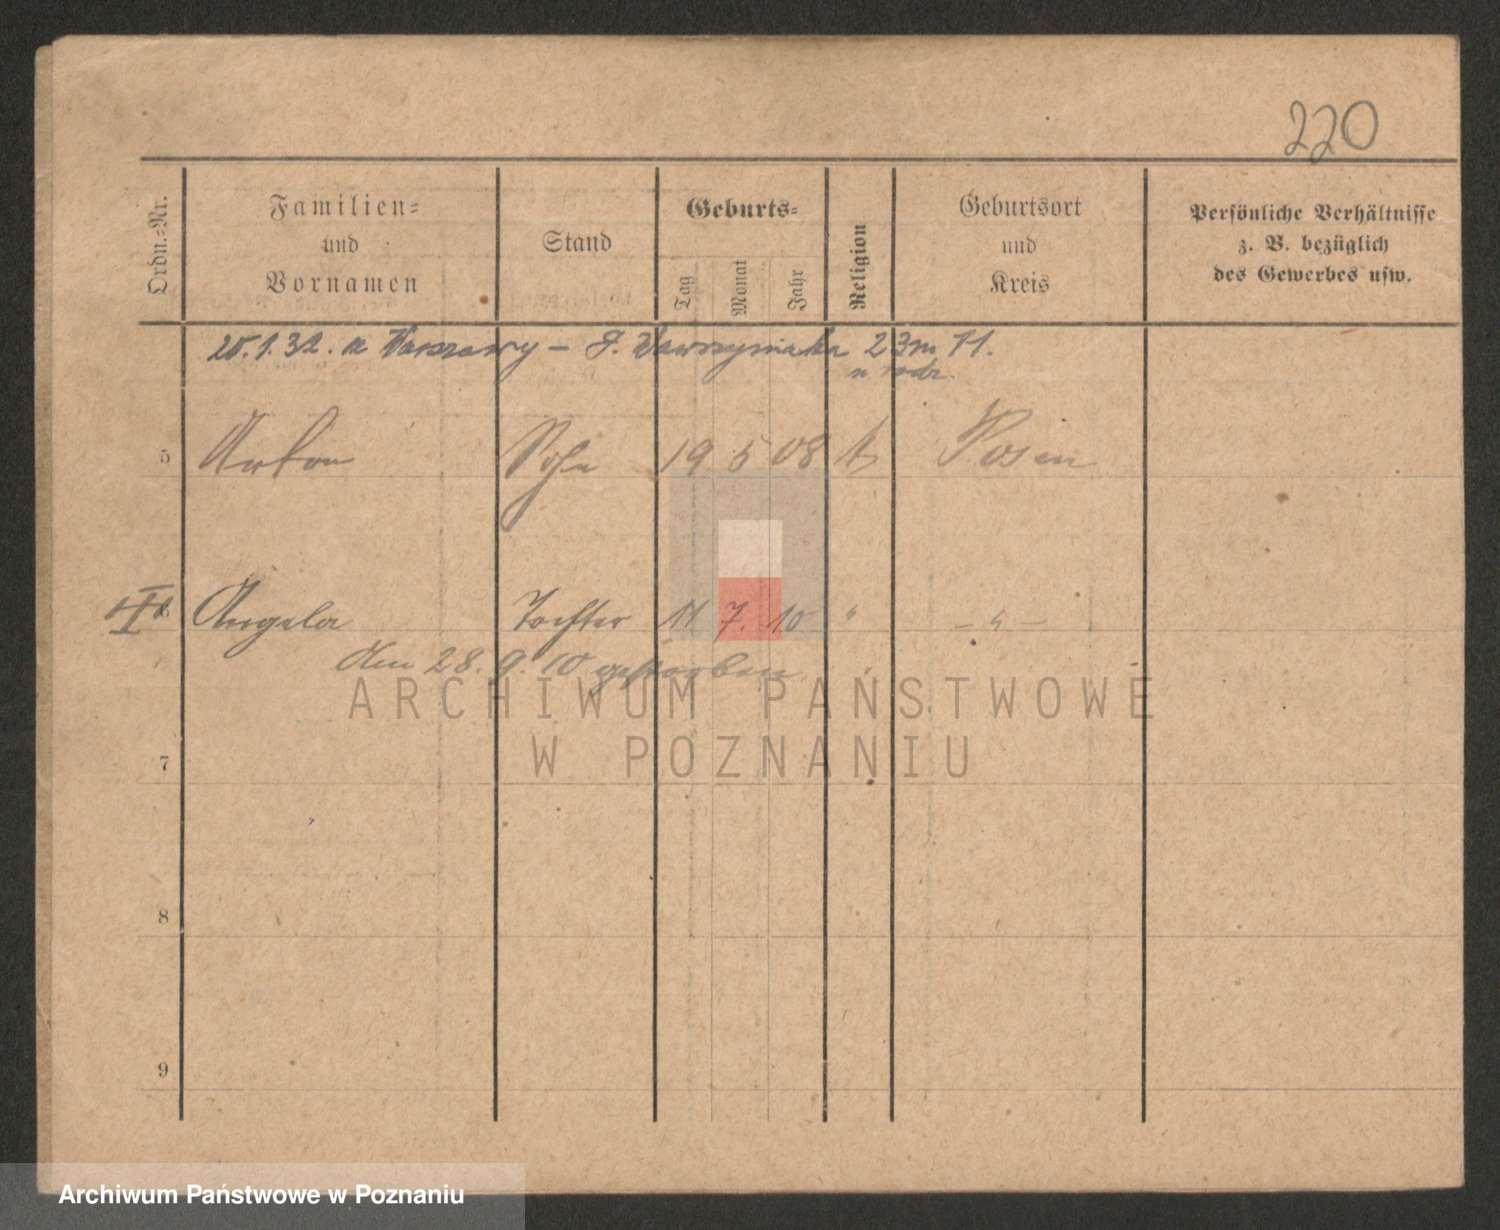 220
Ordn.-Nr.
Familien-
und
Vornamen
Stand
Geburts-
Tag
Monat
Jahr
Religion
Geburtsort
und
Kreis
Persönliche Verhältnisse
z. B. bezüglich
des Gewerbes usw.
1.32. z Warszawy – Wawrzyniaka 23 m 11.
5 Anton Sohn 19 5 08 k Posen
6 Angela Tochter 11 7. 10 " – " –
den 28. 9. 10 gestorben
ARCHIWUM PAŃSTWOWE
W POZNANIU
7
8
9
Archiwum Państwowe w Poznaniu